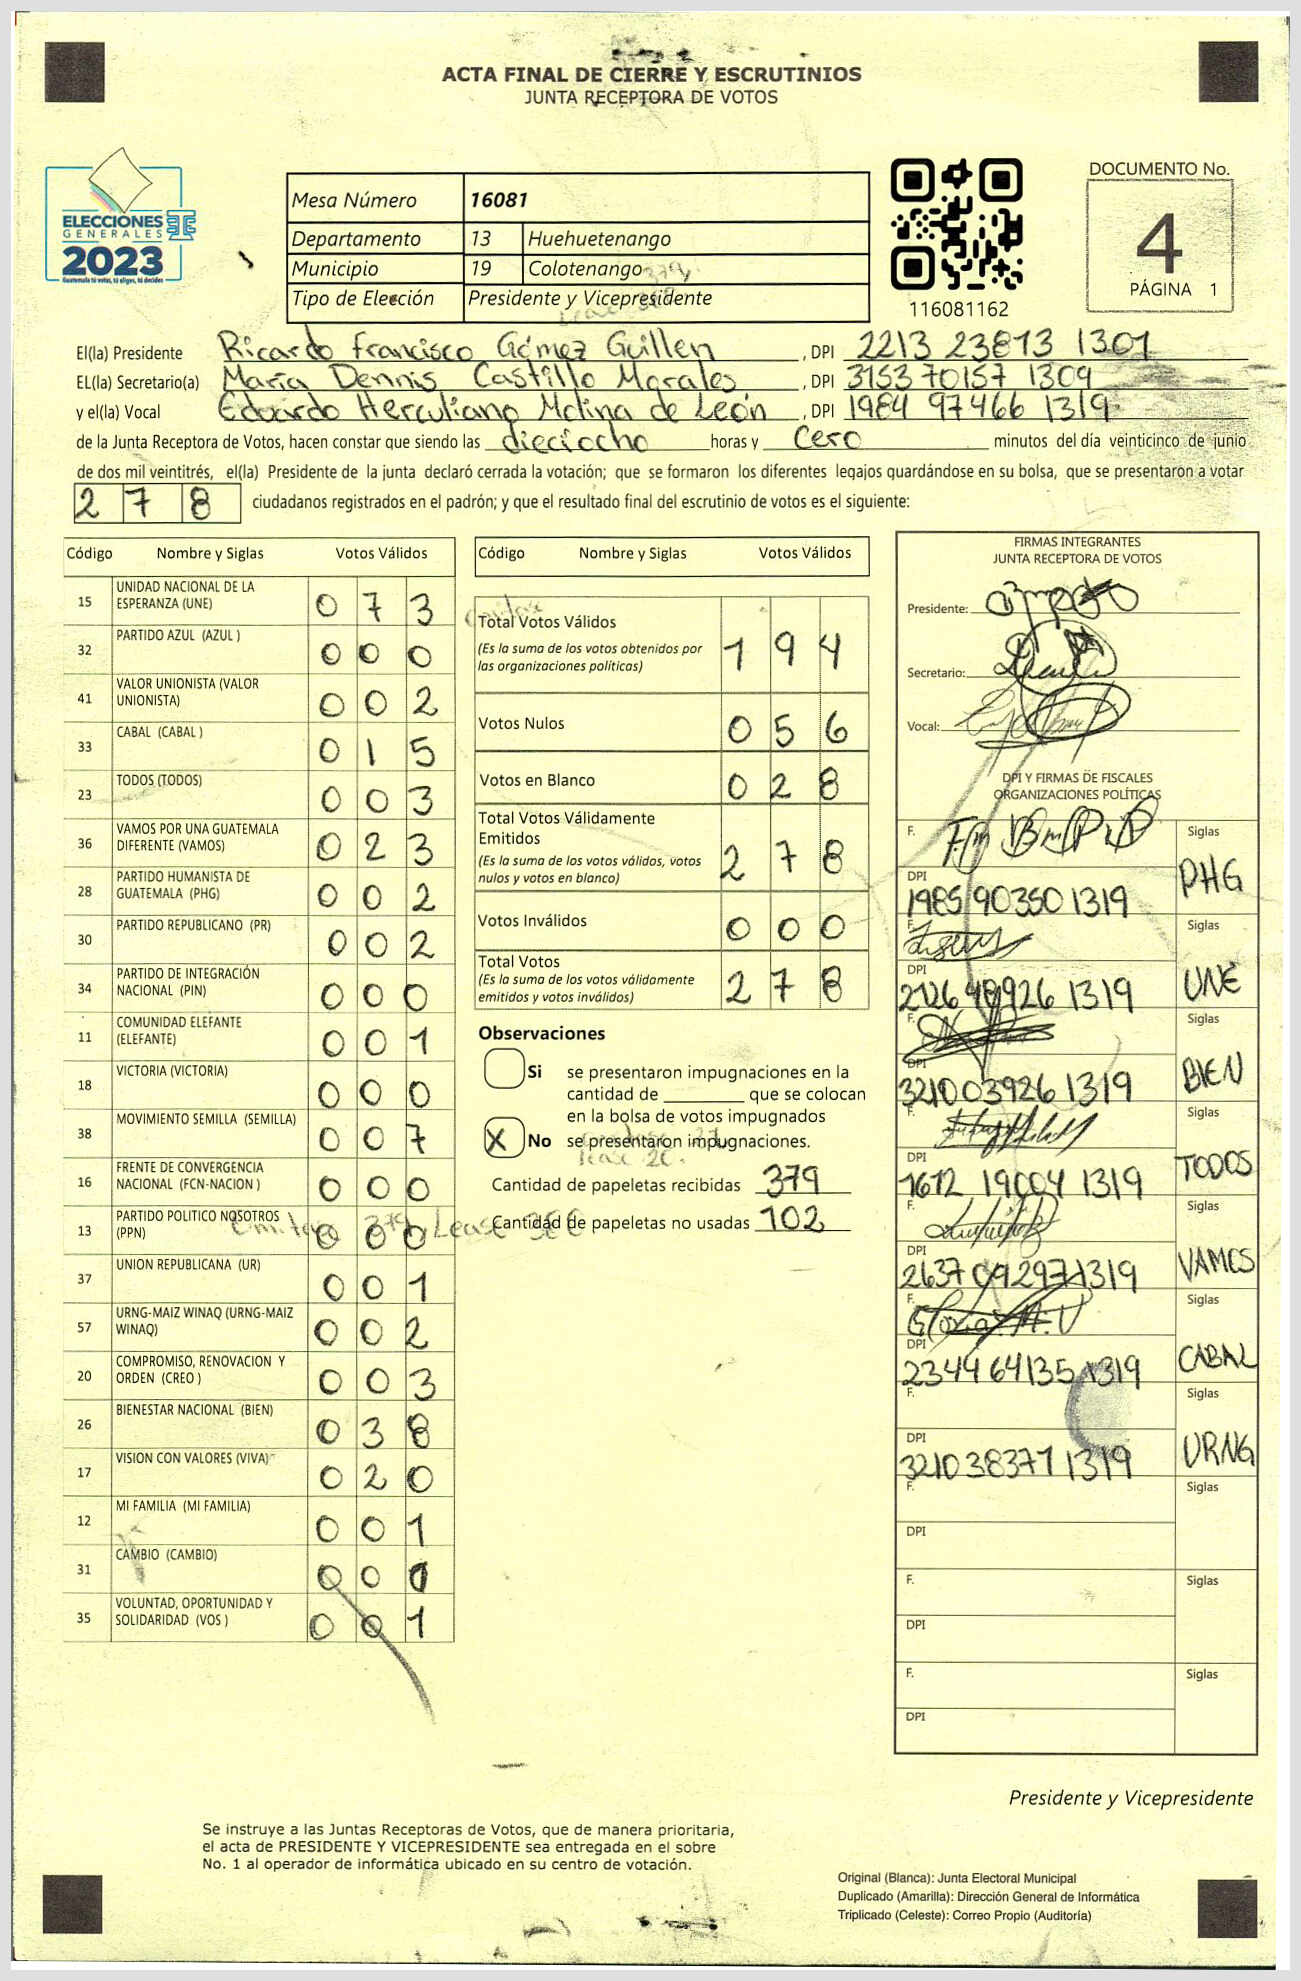 ACTA FINAL DE CIERRE Y ESCRUTINIOS
JUNTA RECEPTORA DE VOTOS
ELECCIONES
GENERALES
2023
Guatemala tú votas, tú eliges, tú decides
Mesa Número 16081
Departamento 13 Huehuetenango
Municipio 19 Colotenango
Tipo de Elección Presidente y Vicepresidente
116081162
DOCUMENTO No.
4
PÁGINA 1
El(la) Presidente Ricardo Francisco Gómez Guillen, DPI 2213 23813 1301
EL(la) Secretario(a) María Dennis Castillo Morales, DPI 3153 70157 1309
y el(la) Vocal Eduardo Herculiano Molina de León, DPI 1984 97466 1319
de la Junta Receptora de Votos, hacen constar que siendo las dieciocho horas y cero minutos del día veinticinco de junio
de dos mil veintitrés, el(la) Presidente de la junta declaró cerrada la votación; que se formaron los diferentes legajos quardándose en su bolsa, que se presentaron a votar
278 ciudadanos registrados en el padrón; y que el resultado final del escrutinio de votos es el siguiente:
Código Nombre y Siglas Votos Válidos
15 UNIDAD NACIONAL DE LA ESPERANZA (UNE) 0 7 3
32 PARTIDO AZUL (AZUL ) 0 0 0
41 VALOR UNIONISTA (VALOR UNIONISTA) 0 0 2
33 CABAL (CABAL ) 0 1 5
23 TODOS (TODOS) 0 0 3
36 VAMOS POR UNA GUATEMALA DIFERENTE (VAMOS) 0 2 3
28 PARTIDO HUMANISTA DE GUATEMALA (PHG) 0 0 2
30 PARTIDO REPUBLICANO (PR) 0 0 2
34 PARTIDO DE INTEGRACIÓN NACIONAL (PIN) 0 0 0
11 COMUNIDAD ELEFANTE (ELEFANTE) 0 0 1
18 VICTORIA (VICTORIA) 0 0 0
38 MOVIMIENTO SEMILLA (SEMILLA) 0 0 7
16 FRENTE DE CONVERGENCIA NACIONAL (FCN-NACION ) 0 0 0
13 PARTIDO POLITICO NOSOTROS (PPN) 0 0 0
37 UNION REPUBLICANA (UR) 0 0 1
57 URNG-MAIZ WINAQ (URNG-MAIZ WINAQ) 0 0 2
20 COMPROMISO, RENOVACION Y ORDEN (CREO ) 0 0 3
26 BIENESTAR NACIONAL (BIEN) 0 3 8
17 VISION CON VALORES (VIVA) 0 2 0
12 MI FAMILIA (MI FAMILIA) 0 0 1
31 CAMBIO (CAMBIO) 0 0
35 VOLUNTAD, OPORTUNIDAD Y SOLIDARIDAD (VOS ) 0 0 1
Código Nombre y Siglas Votos Válidos
Total Votos Válidos 1 9 4
(Es la suma de los votos obtenidos por
las organizaciones políticas)
Votos Nulos 0 5 6
Votos en Blanco 0 2 8
Total Votos Válidamente
Emitidos 2 7 8
(Es la suma de los votos válidos, votos
nulos y votos en blanco)
Votos Inválidos 0 0 0
Total Votos 2 7 8
(Es la suma de los votos válidamente
emitidos y votos inválidos)
Observaciones
Si se presentaron impugnaciones en la
cantidad de ________ que se colocan
en la bolsa de votos impugnados
X No se presentaron impugnaciones.
Cantidad de papeletas recibidas 379
Cantidad de papeletas no usadas 102
FIRMAS INTEGRANTES
JUNTA RECEPTORA DE VOTOS
Presidente:
Secretario:
Vocal:
DPI Y FIRMAS DE FISCALES
ORGANIZACIONES POLÍTICAS
F. Siglas
DPI 1985 90350 1319 PHG
F. Siglas
DPI 2126 48926 1319 UNE
F. Siglas
DPI 3210 03926 1319 BIEN
F. Siglas
DPI 1672 19004 1319 TODOS
F. Siglas
DPI 2637 09297 1319 VAMOS
F. Siglas
DPI 2344 64135 1319 CABAL
F. Siglas
DPI 3210 38371 1319 URNG
F. Siglas
DPI
F. Siglas
DPI
F. Siglas
DPI
Presidente y Vicepresidente
Se instruye a las Juntas Receptoras de Votos, que de manera prioritaria,
el acta de PRESIDENTE Y VICEPRESIDENTE sea entregada en el sobre
No. 1 al operador de informática ubicado en su centro de votación.
Original (Blanca): Junta Electoral Municipal
Duplicado (Amarilla): Dirección General de Informática
Triplicado (Celeste): Correo Propio (Auditoría)